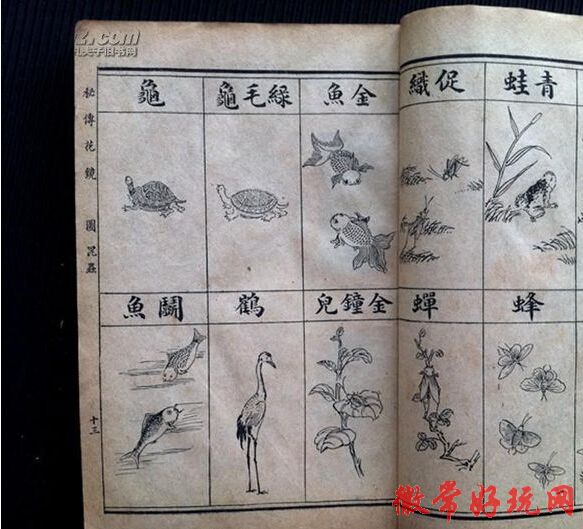 青蛙
促織
金魚
綠毛龜
龜
蜂
蟬
金鐘兒
鶴
鬭魚
秘傳花鏡
圖
昆蟲
十三
.com
夫子旧书网
微常好玩网